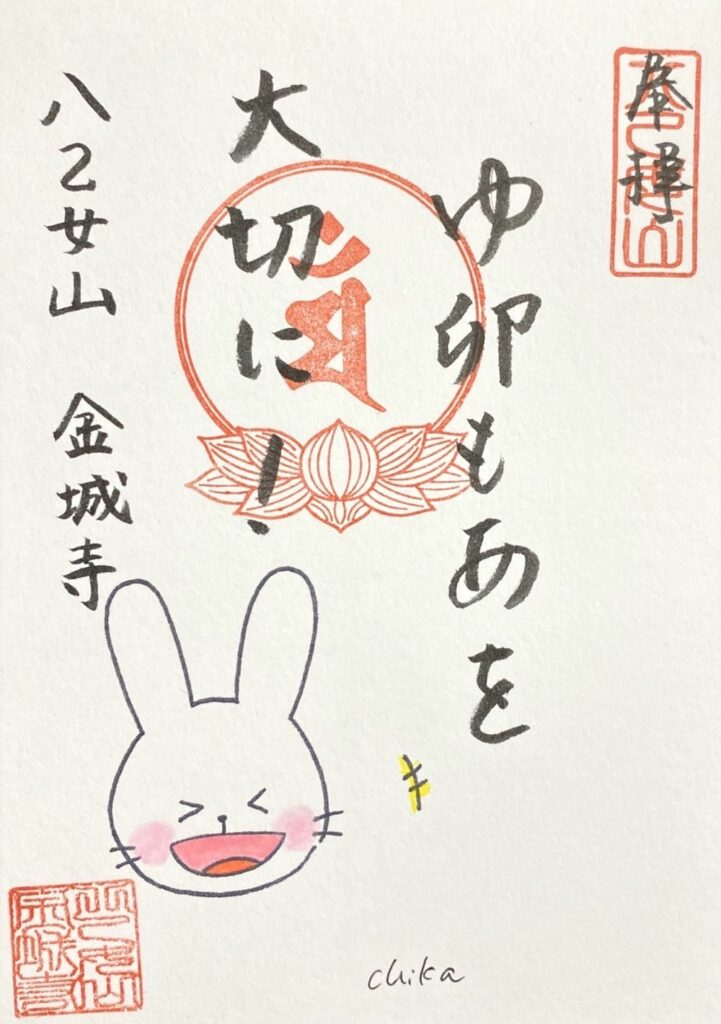 奉拝
ゆ卯もあを
大切に!
八乙女山 金城寺
chika